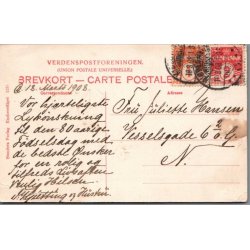 VERDENSPOSTFORENINGEN.
(UNION POSTALE UNIVERSELLE.)
BREVKORT — CARTE POSTALE
Correspondance.
Adresse.
d. 12. Marts 1908.
Vor hjerteligste
Lykønskning
til den 80aarige
Fødselsdag med
de bedste Ønsker
for en rolig og
tilfreds
Venlig Hilsen
og Hustru
Fru Juliette Hansen
Vesselsgade
N.